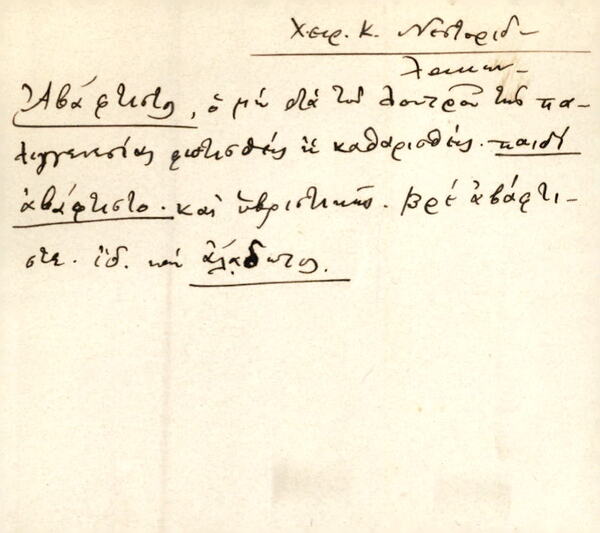 Χειρ. Κ. Νεστορίδ-
Ἀβάφτιστος, ὁ μὴ διὰ τοῦ λουτροῦ τῆς πα-
λιγγενεσίας φωτισθείς κ καθαρισθείς. παιδί
ἀβάφτιστο. καὶ ὑβριστικῶς. βρὲ ἀβάφτι-
στε. ἰδ. καὶ ἀλάδωτος.